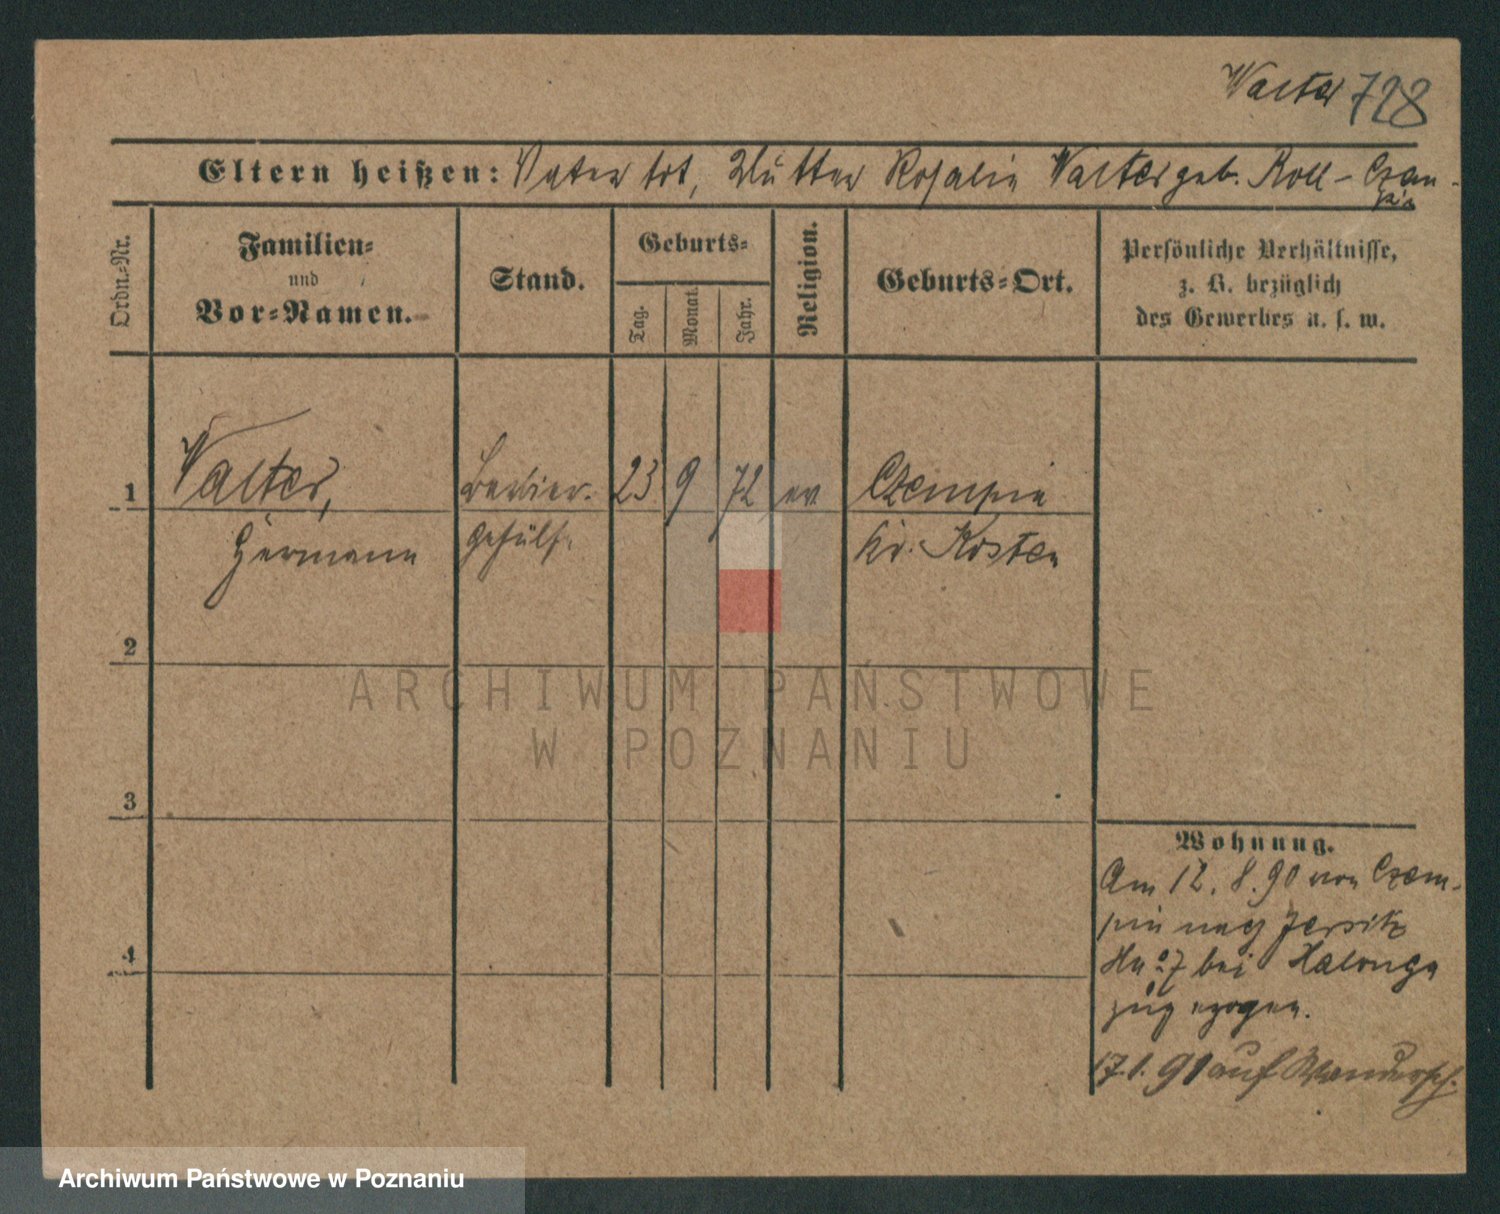 Walter 728
Eltern heißen: Vater tot, Mutter Rosalie Walter geb. Roll - Czem-
pin
Ordn.-Nr.
Familien-
und
Vor-Namen.
Stand.
Geburts-
Tag.
Monat.
Jahr.
Religion.
Geburts-Ort.
Persönliche Verhältnisse,
z. B. bezüglich
des Gewerbes u. s. w.
1 Walter, Barbier- 23 9 72 ev Czempin
Hermann gehülfe Kr. Kosten
2
3
4
Wohnung.
Am 12. 8. 90 von Czem-
pin nach Jersitz
No 7 bei
zugezogen.
17.1.91 auf Wandersch.
ARCHIWUM PAŃSTWOWE
W POZNANIU
Archiwum Państwowe w Poznaniu